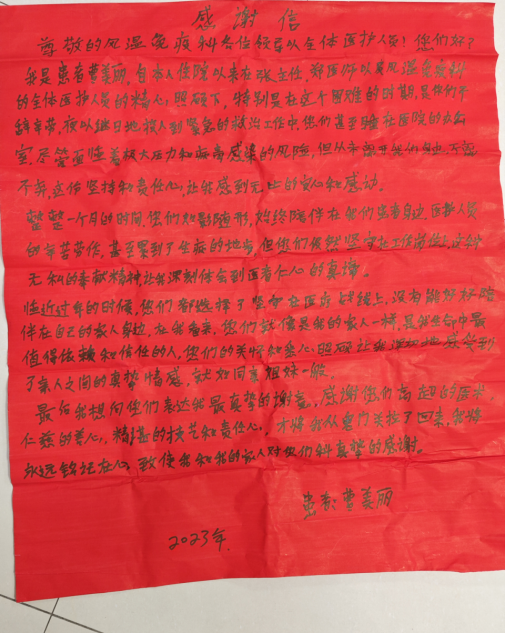 感谢信
尊敬的风湿免疫科各位领导以全体医护人员！您们好？
我是患者曹美丽，自本人住院以来在张主任 郑医师以及风湿免疫科
的全体医护人员的精心照顾下，特别是在这个困难的时期，是你们不
辞辛劳，夜以继日地投入到紧急的救治工作中，您们甚至睡在医院的
室，尽管面临着极大压力和病毒感染的风险，但从未
不弃，这份坚持和责任心，让我感到无比的安心和感动。
整整一个月的时间，您们如影随形，始终陪伴在我们患者身边，医护人员
的辛苦劳作，甚至累到了生病的地步，但您们依然坚守在工作岗位，这种
无私的奉献精神，让我深刻体会到医者仁心的真谛。
临近过年的时候，您们都选择了坚守在医疗战线上，没有能好好陪
伴在自己的家人身边，在我看来，您们就像是我的家人一样，是我生命中最
值得依赖和信任的人，您们的关怀和悉心照顾让我深切地感受到
了亲人之间的真挚情感，就如同亲姐妹一般。
最后我想向你们表达我最真挚的谢意，感谢你们高超的医术，
仁慈的善心，精湛的技艺和责任心，才将我从鬼门关拉了回来，我将
永远铭记在心，致使我和我的家人对您们科真挚的感谢。
患者：曹美丽
2023年